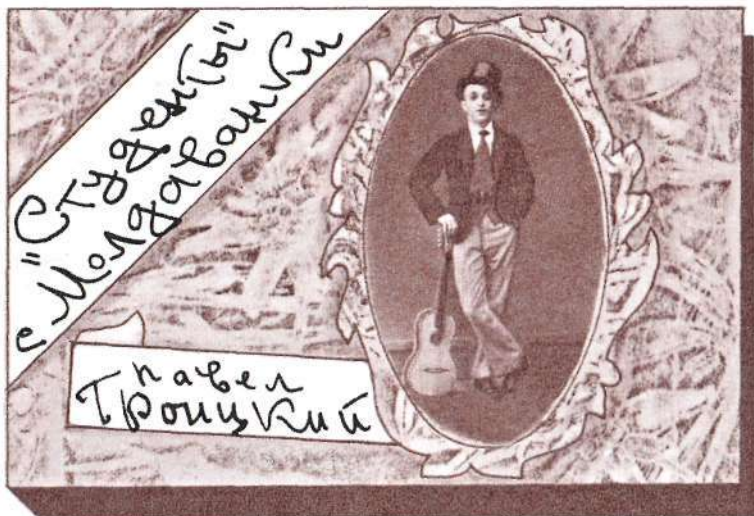 "Студенты"
с Молдаванки
Павел
Троицкий